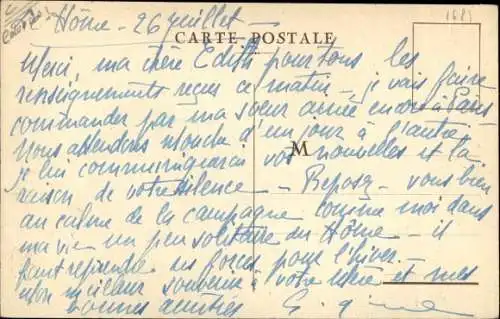 Le Hôme - 26 juillet -
CARTE POSTALE
Merci, ma chère Edith pour tous les
renseignements reçus ce matin - je vais faire
commander par ma sœur aînée encore à Paris
Nous attendons d'un jour à l'autre
je lui communiquerai vos nouvelles et la
M
raison de votre silence - Reposez-vous bien
au calme de la campagne comme moi dans
ma vie un peu solitaire du Hôme - il
faut reprendre des forces pour l'hiver -
Mon meilleur souvenir à votre mère et mes
bonnes amitiés